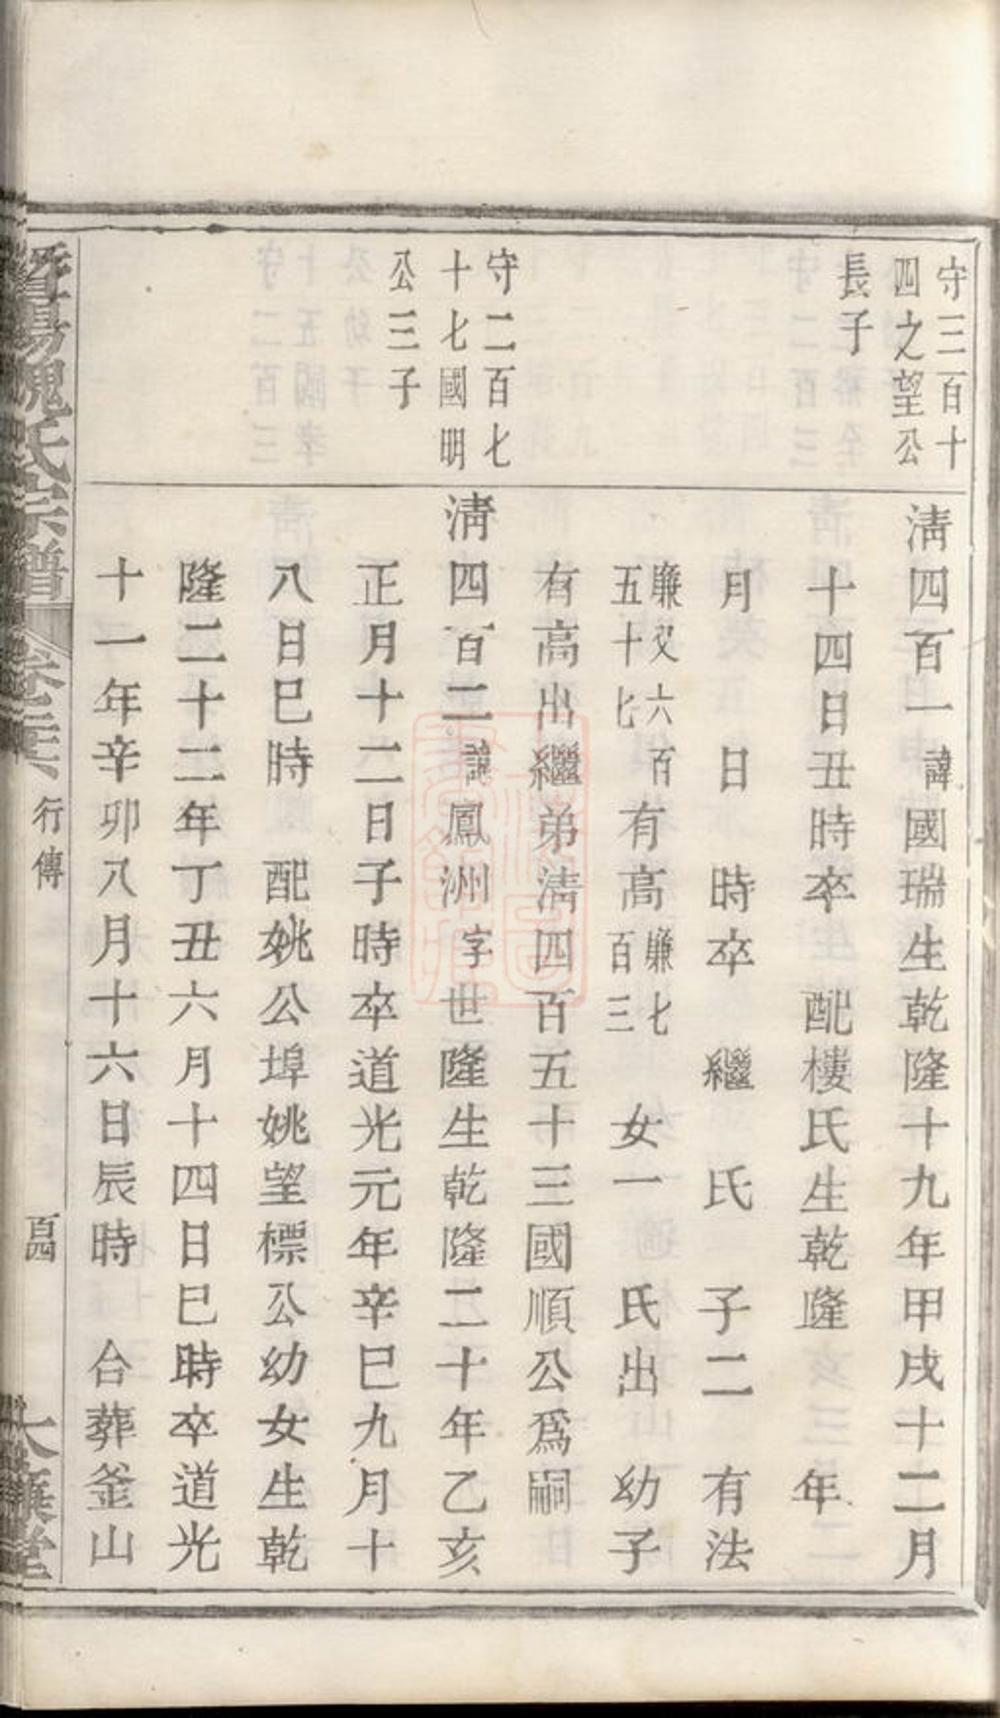 守三百十
四之望公
長子
清四百一諱國瑞生乾隆十九年甲戌十二月
十四日丑時卒 配樓氏生乾隆 年
月 日 時卒 繼 氏 子二 有法
廉又六百
五十七
有高
廉七
百三
女一 氏出 幼子
有高出繼弟清四百五十三國順公爲嗣
守二百七
十七國明
公三子
清四百二諱鳳洲字世隆生乾隆二十年乙亥
正月十二日子時卒道光元年辛巳九月十
八日巳時 配姚公埠姚望標公幼女生乾
隆二十二年丁丑六月十四日巳時卒道光
十一年辛卯八月十六日辰時 合葬釜山
暨陽魏氏宗譜
行傳